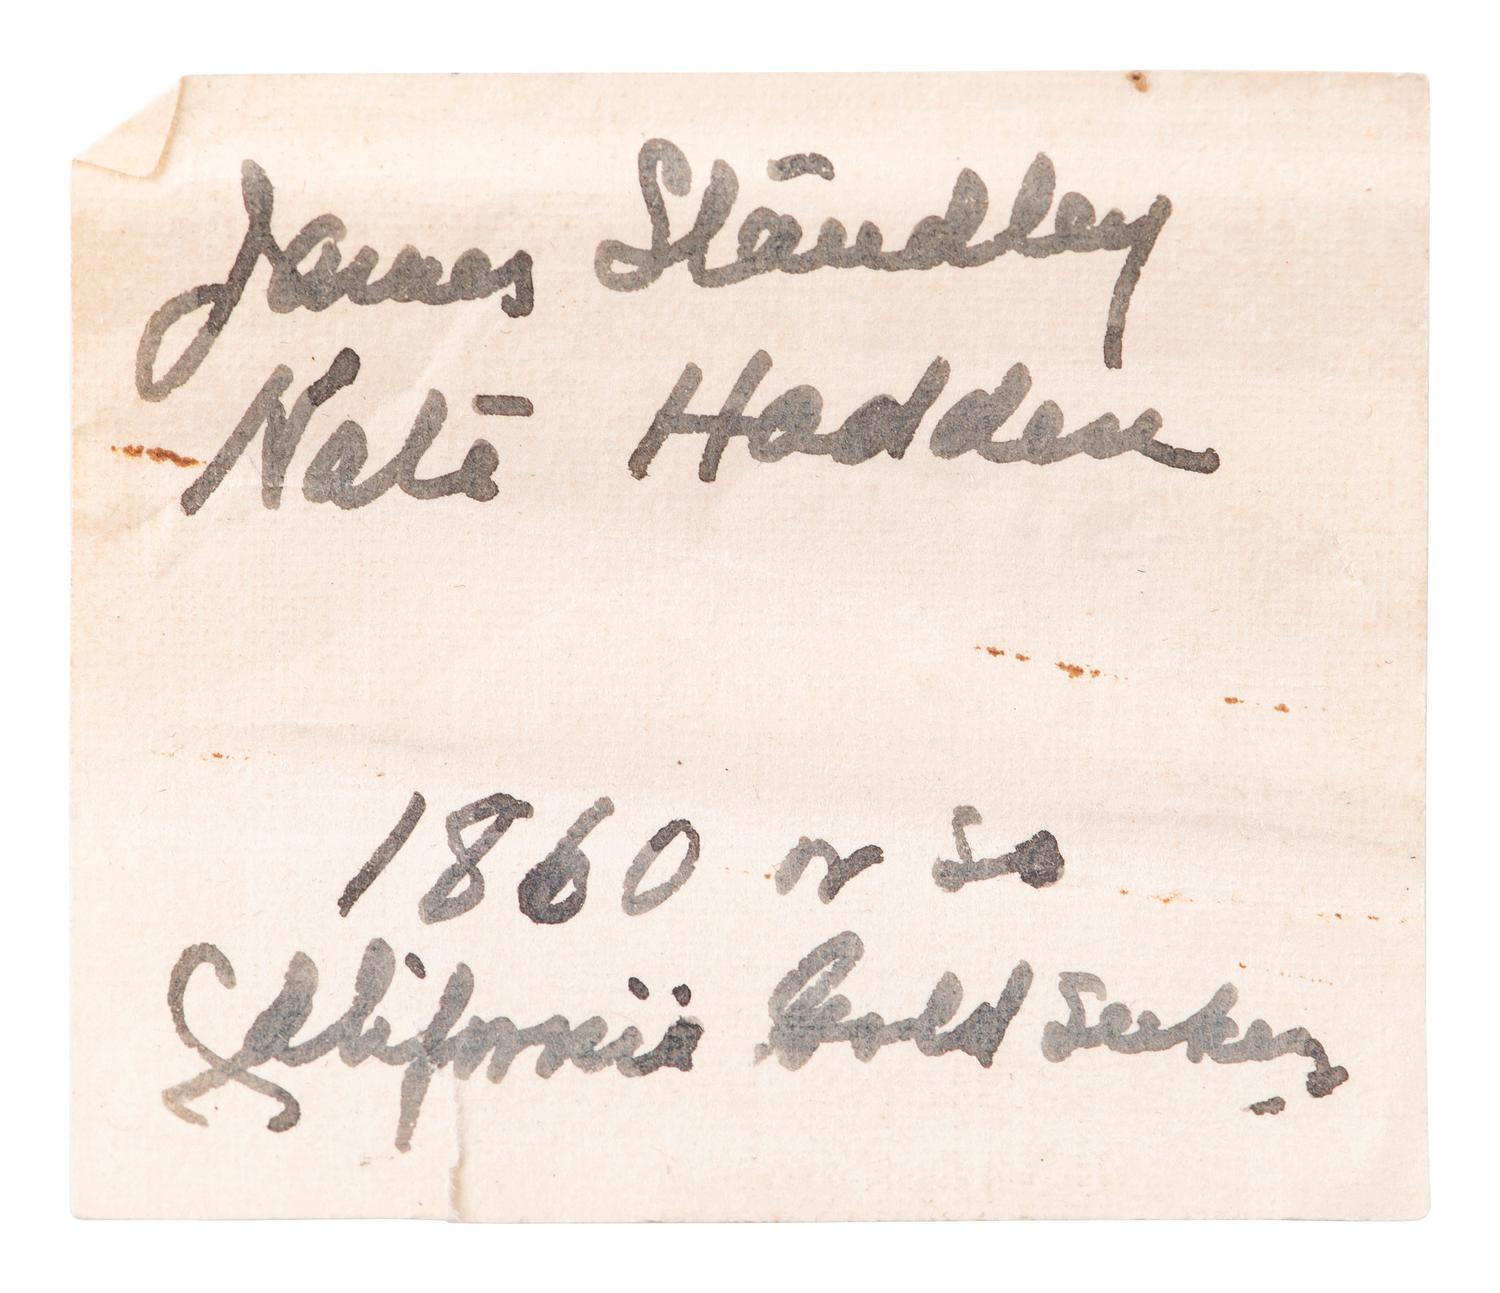 James Standley
Nate Hadden
1860 or so
California Gold Seekers